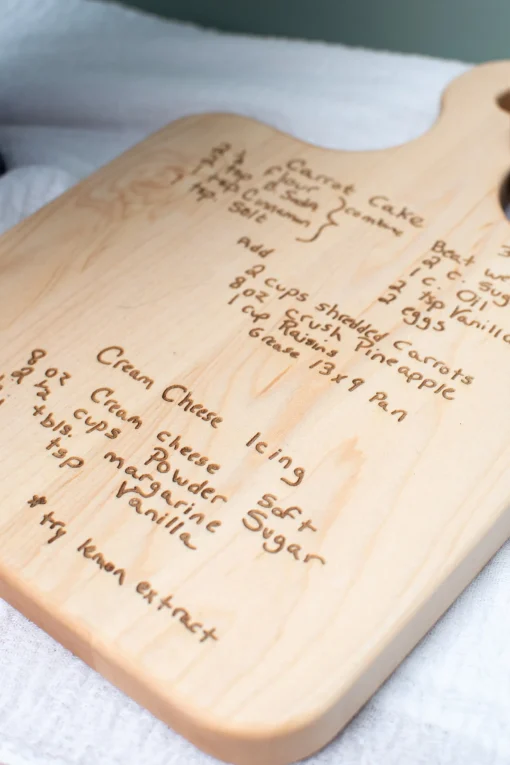 Carrot Cake
flour
B. Soda
tsp. Cinnamon } combine
tsp. Salt
Beat
2 c. Sug
1 c. Oil
2 tsp Vanilla
2 eggs
Add
2 cups shredded Carrots
8 oz crush Pineapple
1 cup Raisins
Grease 13x9 Pan
Cream Cheese Icing
8 oz Cream cheese soft
2 1/2 cups Powder Sugar
tbls. margarine
tsp Vanilla
*try lemon extract